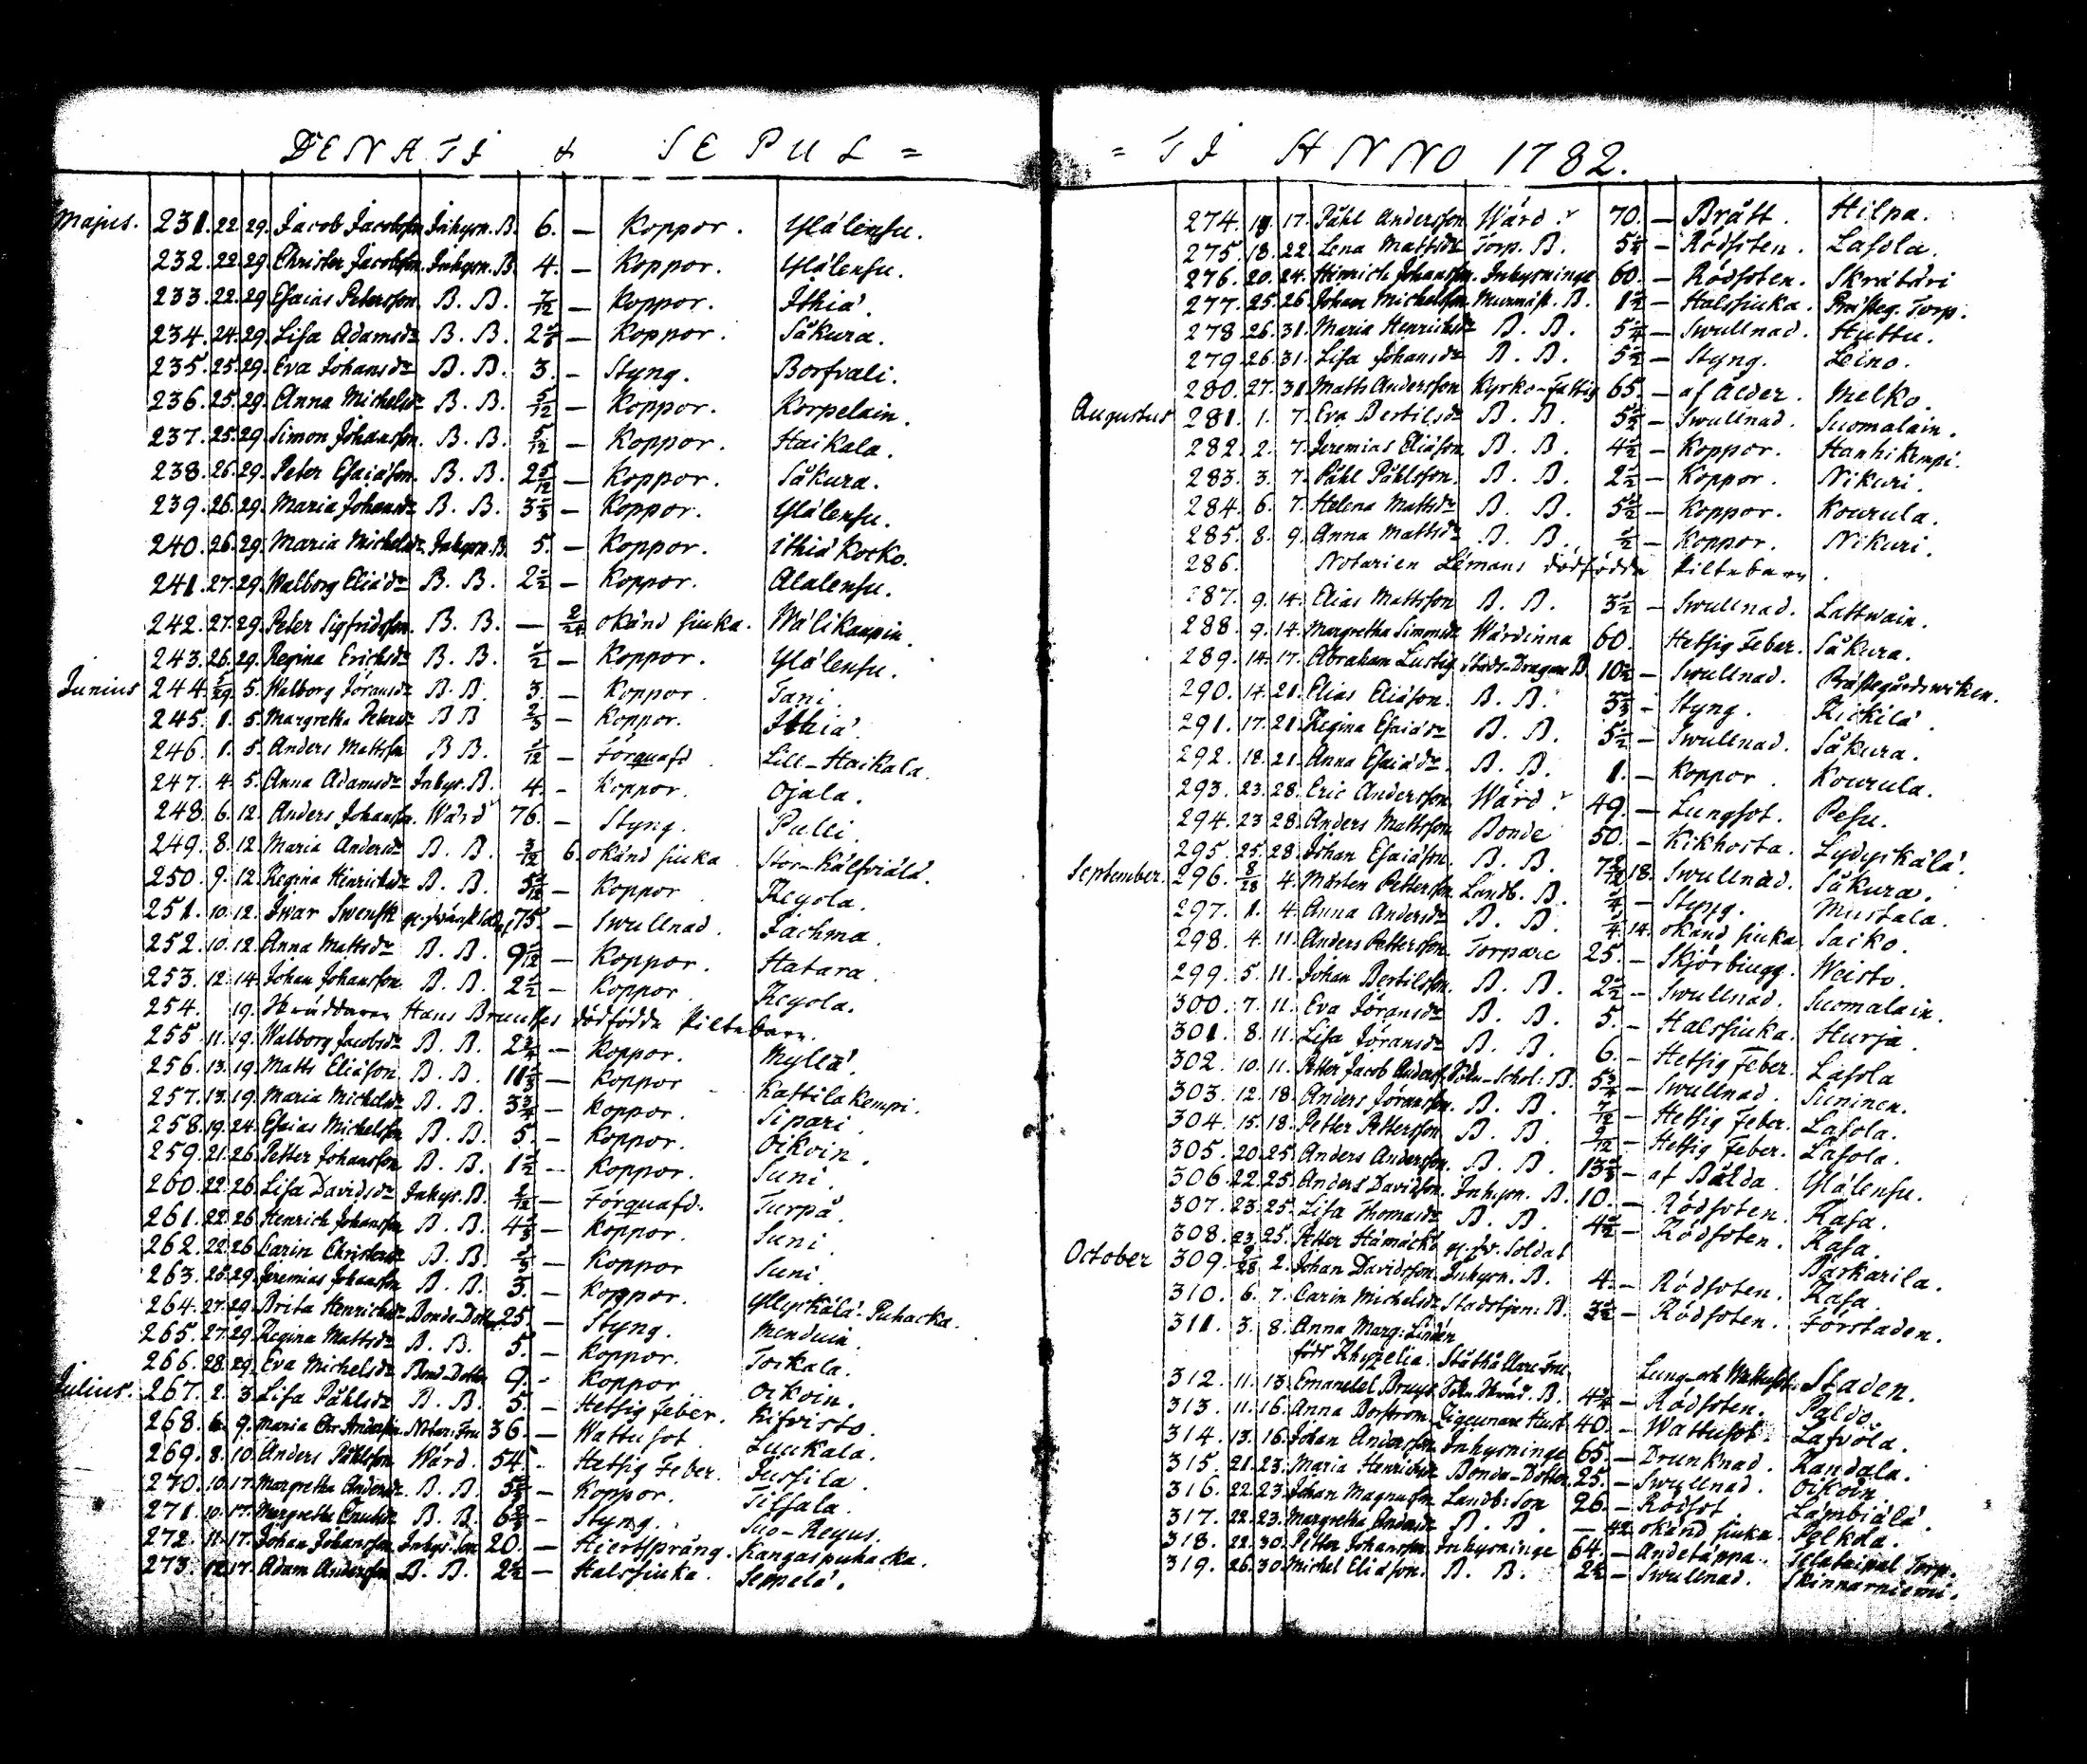 DENATI & SEPUL =
Majus. 231. 22. 29. Jacob Jacobsson Inhysn. B. 6. — Koppor. Ylälensu.
232. 22. 29. Christer Jacobsson. Inhysn. B. 4. — Koppor. Ylälensu.
233. 22. 29 Esaias Petersson B. B. 7/12 — Koppor. Ithiä.
234. 24. 29. Lisa Adamsdr B. B. — Koppor. Såkura.
235. 25. 29. Eva Johansdr B. B. 3. — Styng. Borfvali.
236. 25. 29. Anna Michelsdr B. B. 5/12 — Koppor. Korpelain.
237. 25. 29. Simon Johansson. B. B. 5/12 — Koppor. Haikala.
238. 26. 29. Peter Esaiäson. B. B. 2 5/12 — Koppor. Såkura.
239. 26. 29. Maria Johansdr B. B. 3 1/3 — Koppor. Ylälensu.
240. 26. 29. Maria Michelsdr Inhysn. B. 5. — Koppor. Ithiä Kocko.
241. 27. 29. Walborg Eliädr B. B. 2 1/2 — Koppor. Alalensu.
242. 27. 29. Peter Sigfridsson. B. B. — 2/24 okänd siuka. Wälikaupin.
243. 26. 29. Regina Erichsdr B. B. 1/2 — Koppor. Ylälensu.
Junius 244. 5/29. 5. Walborg Jöransdr B. B. 3. — Koppor. Tani.
245. 1. 5. Margretha Petersdr B B 2/3 — Koppor. Ithiä.
246. 1. 5. Anders Mattsson B B. 1/12 — Förquafd. Lill-Haikala.
247. 4. 5. Anna Adamsdr Inhys. B. 4. — Koppor. Ojala.
248. 6. 12. Anders Johansson. Wärd 76. — Styng. Pulli.
249. 8. 12. Maria Andersdr B. B. 3/12 6. okänd siuka. Stor-Kälfviälä.
250. 9. 12. Regina Hinrichsdr B. B. — Koppor Keyola.
251. 10. 12. Iwar Swensk 75. — Swullnad. Jachma.
252. 10. 12. Anna Mattsdr B. B. — Koppor. Hatara.
253. 12. 14. Johan Johansson B. B. 2 1/2 — Koppor. Keyola.
254. 19. Skräddaren Hans Brunkes dödfödda Piltebarn.
255. 11. 19. Walborg Jacobsdr B. B. 2 3/4 — Koppor. Myllä.
256. 13. 19. Matts Eliäson B. B. — Koppor Kattilakempi.
257. 13. 19. Maria Michelsdr B. B. 3 3/4 — Koppor. Sipari.
258. 19. 24. Esaias Michelsson B. B. 5. — Koppor. Oikoin.
259. 21. 26. Petter Johansson B. B. 1 1/2 — Koppor. Suni.
260. 22. 26. Lisa Davidsdr Inhys. B. 2/12 — Förquafd. Turpå.
261. 22. 26 Henrich Johansson B. B. — Koppor. Suni.
262. 22. 26 Carin Christersdr B. B. — Koppor Suni.
263. 28. 29. Jeremias Johansson B. B. 3. — Koppor. Yllyskälä-Puhacka.
264. 27. 29. Brita Henrichsdr Bonde-Dotter 25. — Styng. Menduin.
265. 27. 29. Regina Mattsdr B. B. 5. — Koppor. Toikala.
266. 28. 29. Eva Michelsdr Bond-Dotter 9. — Koppor Oikoin.
Julius. 267. 2. 3. Lisa Påhlsdr B. B. 5. — Hetsig Feber. Kifvisto.
268. 6. 9. Maria Chr. Andersin. Notar: Fru 36. — Wattusot. Luukala.
269. 8. 10. Anders Påhlsson Wärd. 54. — Hetsig Feber. Jussila.
270. 10. 17. Margretha Andersdr. B. B. — Koppor. Tilsala.
271. 10. 17. Margretha Cnutsdr B. B. — Styng. Suo-Reyus.
272. 11. 17. Johan Johansson Inhys: Son 20. — Hiertsprång. Kangaspuhacka.
273. 12. 17. Adam Andersson B. B. 2 1/2 — Halssiuka. Seppelä.
= TI ANNO 1782.
274. 17. Påhl Andersson Wärd. 70. — Brått. Hilpa.
275. 18. 22. Lena Mattsdr Torp. B. — Rödsoten. Lasola.
276. 20. 24. Hinrich Johansson. Inhysninge 60. — Rödsoten. Skrätäri
277. 25. 26. Johan Michelsson. Murmäst. B. 1 1/2 — Halssiuka. Prästeg. Torp.
278. 26. 31. Maria Henrichsdr B. B. — Swullnad. Huttu.
279. 26. 31. Lisa Johansdr B. B. 5 1/2 — Styng. Leino.
280. 27. 31. Matts Andersson Kyrko-Fattig 65. — af Ålder. Melko.
Augustus 281. 1. 7. Eva Bertilsdr B. B. 5 1/2 — Swullnad. Suomalain.
282. 2. 7. Jeremias Eliäson. B. B. 4 1/2 — Koppor. Hanhikempi.
283. 3. 7. Påhl Påhlsson. B. B. 2 1/2 — Koppor. Nikuri.
284. 6. 7. Helena Mattsdr B. B. 5 1/2 — Koppor. Kourula.
285. 8. 9. Anna Mattsdr B. B. 1/2 — Koppor. Nikuri.
286. Notarien Lemans dödfödda Piltebarn.
287. 9. 14. Elias Mattsson B. B. 3 1/2 — Swullnad. Lattwain.
288. 9. 14. Margretha Simonsdr Wärdinna 60. Hetsig Feber. Såkura.
289. 14. 17. Abraham Lustig Stads-Dragon B. 10 1/2 — Swullnad. Prästegårdswiken.
290. 14. 21. Elias Eliäson. B. B. — Styng. Kickilä.
291. 17. 21. Regina Esaiädr B. B. 5 1/2 — Swullnad. Såkura.
292. 18. 21. Anna Esaiädr. B. B. 1. — Koppor. Kourula.
293. 23. 28. Eric Andersson Wärd. 49. — Lungsot. Pesu.
294. 23 28. Anders Mattsson Bonde 50. — Kikhosta. Lydyskälä.
295. 25. 28. Johan Esaiäson. B. B. 18. Swullnad. Såkura.
September. 296. 8/28 4. Mårten Pettersson Landb. B. — Styng. Mustala.
297. 1. 4. Anna Andersdr B. B. 14. okänd siuka Saiko.
298. 4. 11. Anders Pettersson. Torpare 25. — Skjörbiugg. Weisto.
299. 5. 11. Johan Bertilsson. B. B. 2 1/2 — Swullnad. Suomalain.
300. 7. 11. Eva Jöransdr B. B. 5. — Halssiuka. Hurja.
301. 8. 11. Lisa Jöransdr B. B. 6. — Hetsig Feber. Lasola
302. 10. 11. Petter Jacob Anderss. B. 5 3/4 — Swullnad. Suninen.
303. 12. 18. Anders Jöransson. B. B. 7/12 — Hetsig Feber. Lasola.
304. 15. 18. Petter Pettersson B. B. 9/12 — Hetsig Feber. Lasola.
305. 20. 25. Anders Andersson. B. B. — af Bålda. Ylälensu.
306. 22. 25. Anders Davidson. Inhysn. B. 10. — Rödsoten. Kasa.
307. 23. 25. Lisa Thomasdr B. B. 4 1/2 — Rödsoten. Kasa.
308. 23. 25. Petter Hämäckö Soldat Barkarila.
October 309. 9/28 2. Johan Davidsson. Inhysn. B. 4. — Rödsoten. Kasa.
310. 6. 7. Carin Michelsdr Stadstjen: B. 3 1/2 — Rödsoten. Förstaden.
311. 3. 8. Anna Marg: Lindén
född Khyzelia. Ståthållare Fru Lung och Wattusot: Staden.
312. 11. 13. Emanuel Bruys B. — Rödsoten. Paldo.
313. 11. 16. Anna Borström Zigeunare Hust 40. — Wattusot. Lafvola.
314. 13. 16. Johan Andersson Inhysninge 65. — Drunknad. Kandala.
315. 21. 23. Maria Henrichsdr Bonde-Dotter 25. — Swullnad. Oikoin
316. 22. 23. Johan Magnusson Landb: Son 26. — Rödsot Lämbiälä.
317. 22. 23. Margretha Andersdr B. B. — 42. okänd siuka. Pelkola.
318. 22. 30. Petter Johansson Inhysninge 64. — Andetäppa. Telataipal Torp.
319. 26. 30. Michel Eliäson. B. B. 2 1/2 — Swullnad. Skinnarniemi.